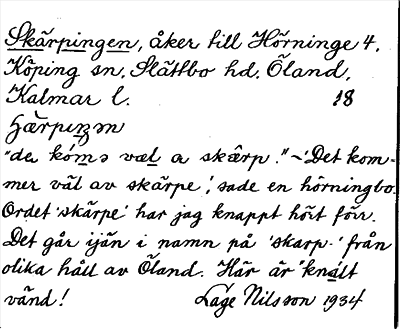 Skärpingen, åker till Hörninge 4,
Köping sn, Slättbo hd, Öland,
Kalmar l. 18
"de kom̲ə væl a skærp." ~ 'Det kom-
mer väl av skärpe', sade en hörningbo.
Ordet 'skärpe' har jag knappt hört förr.
Det går ijän i namn på 'skarp-' från
olika håll av Öland. Här är "knält
vänd! Låge Nilsson 1934